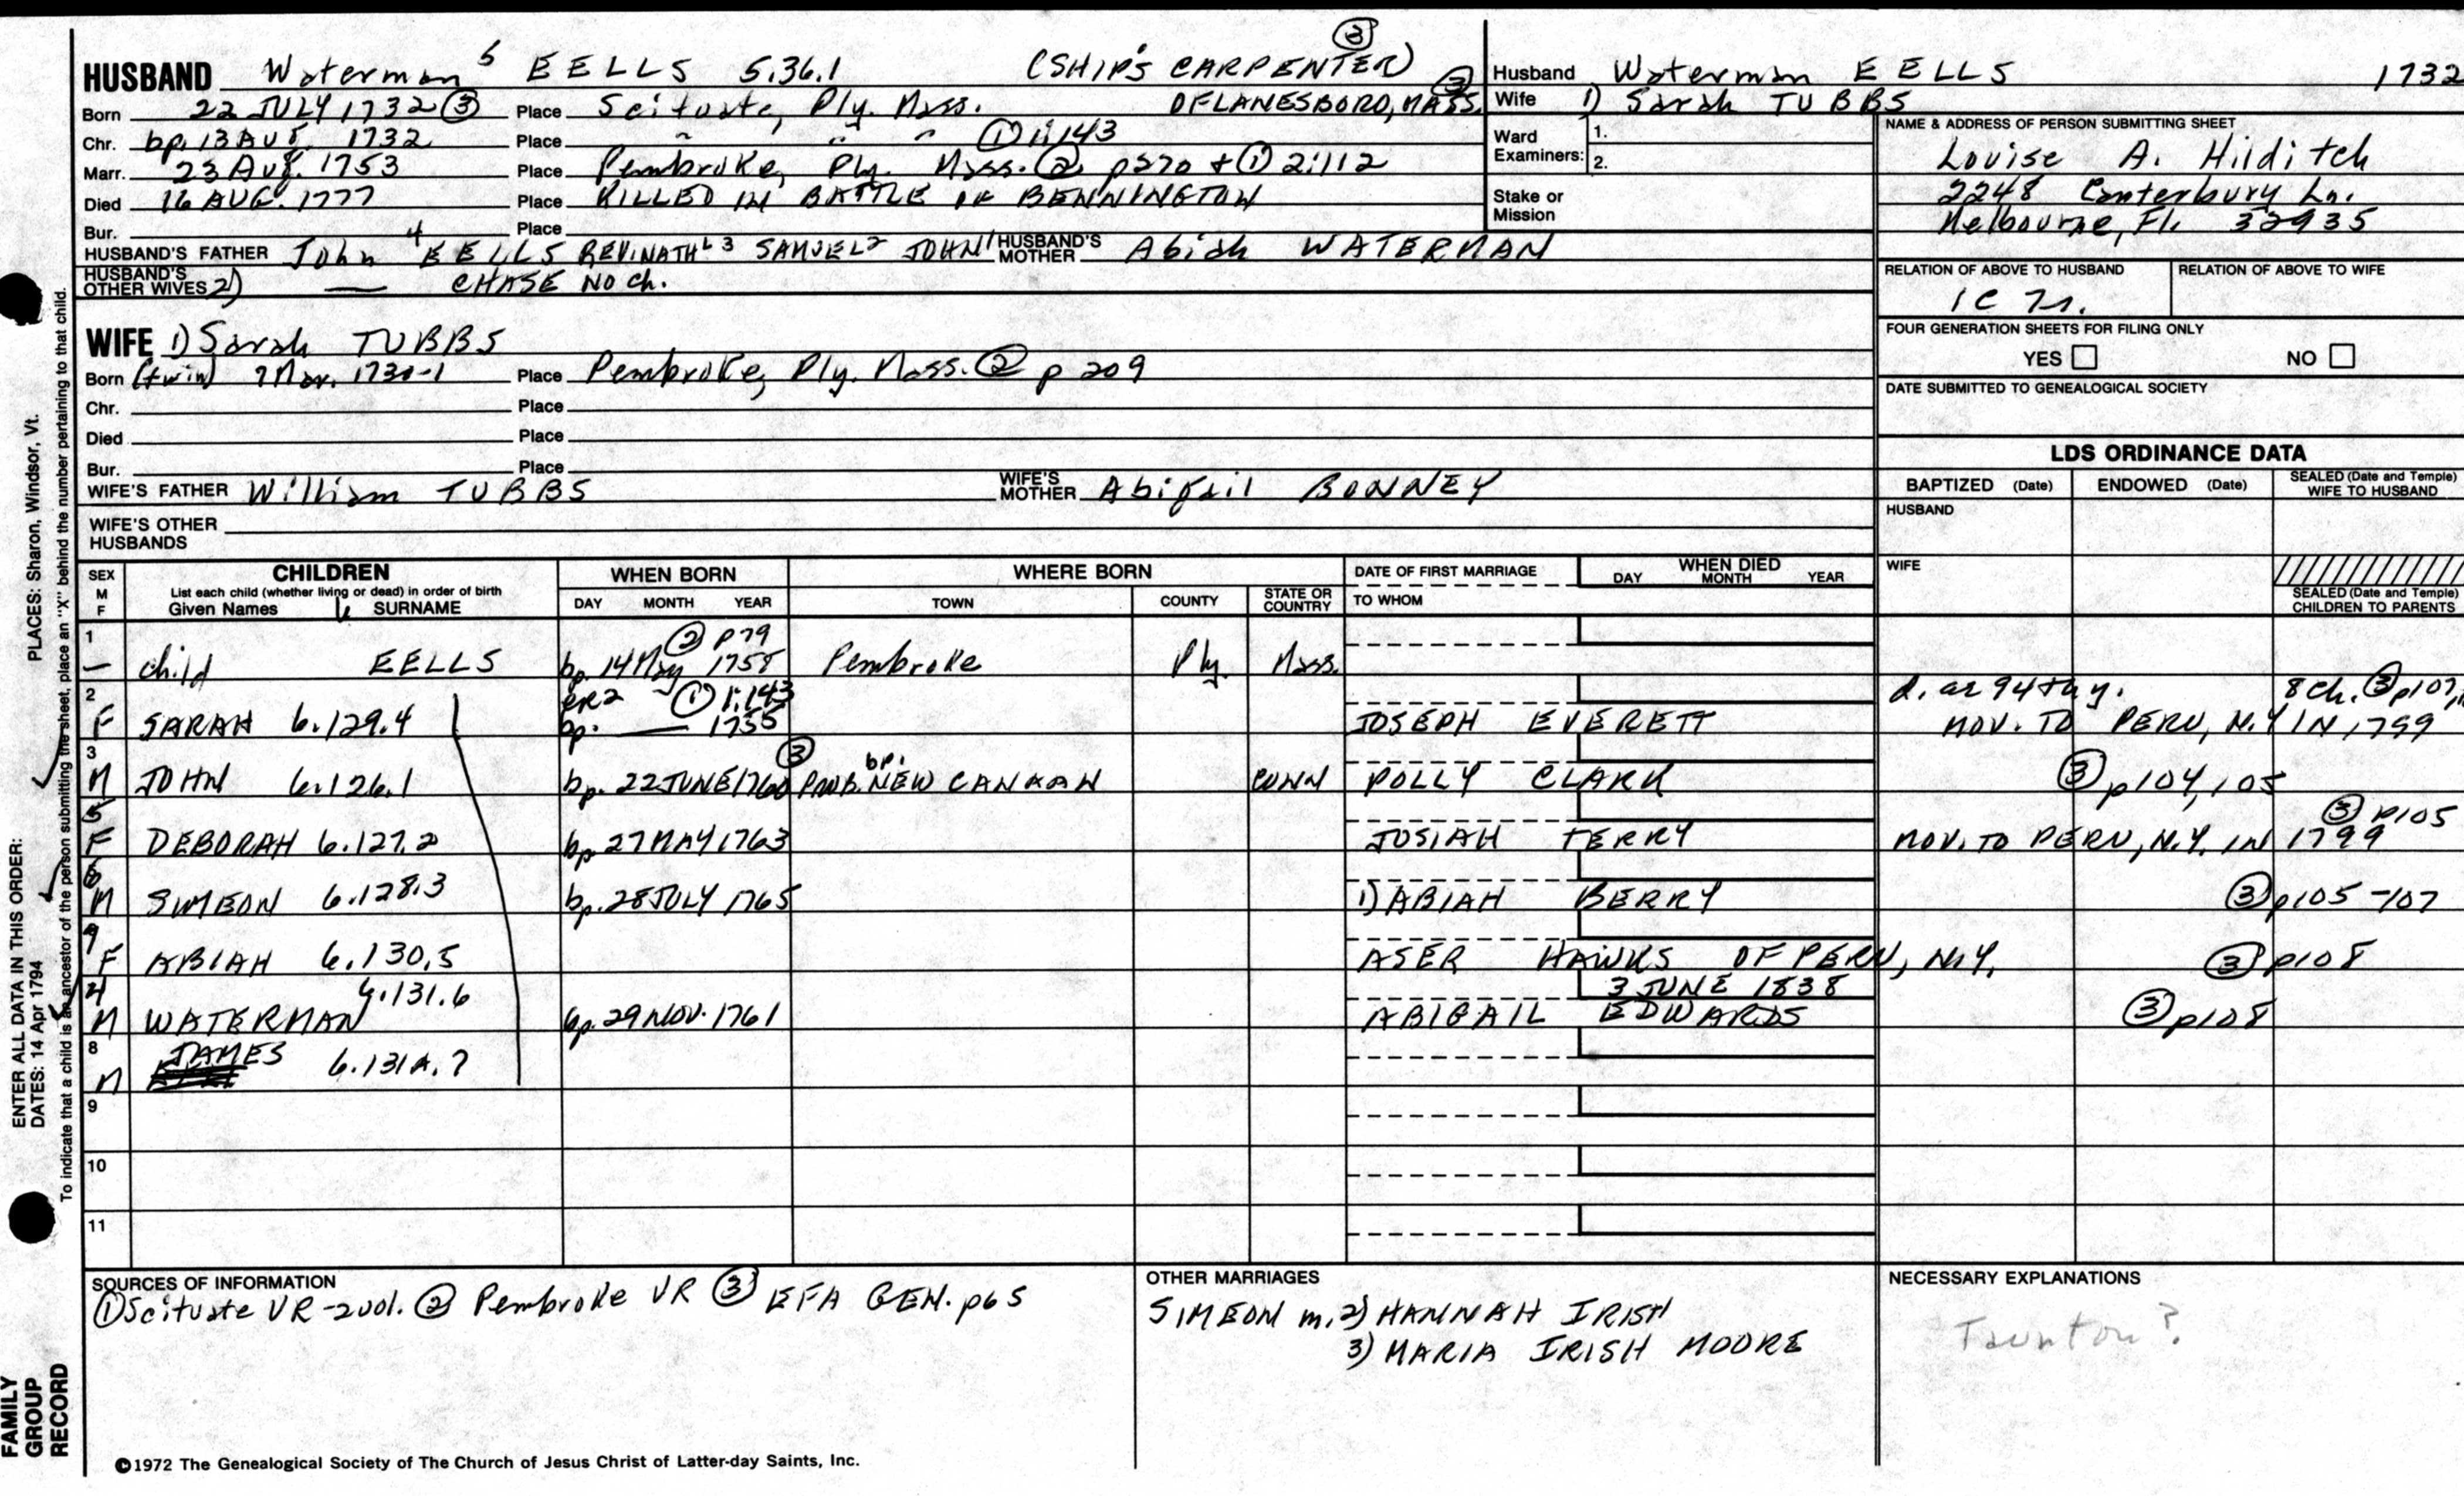 ③
HUSBAND Waterman 5 EELLS 5.36.1 (SHIP'S CARPENTER) ③
Born 22 JULY 1732 ③ Place Scituate, Ply. Mass. OF LANESBORO, MASS.
Chr. bp. 13 AUG. 1732 Place " " " ① 1:143
Marr. 23 Aug. 1753 Place Pembroke, Ply. Mass. ② p270 + ① 2:112
Died 16 AUG. 1777 Place KILLED IN BATTLE OF BENNINGTON
Bur. Place
HUSBAND'S FATHER John 4 EELLS REV. NATHL 3 SAMUEL 2 JOHN 1 HUSBAND'S MOTHER Abiah WATERMAN
HUSBAND'S OTHER WIVES 2) — CHASE NO Ch.
WIFE 1) Sarah TUBBS
Born (twin) 7 Mar. 1730-1 Place Pembroke, Ply. Mass. ② p 209
Chr. Place
Died Place
Bur. Place
WIFE'S FATHER William TUBBS WIFE'S MOTHER Abigail BONNEY
WIFE'S OTHER HUSBANDS
Husband Waterman EELLS 1732
Wife 1) Sarah TUBBS
Ward Examiners: 1.
2.
Stake or Mission
NAME & ADDRESS OF PERSON SUBMITTING SHEET
Louise A. Hilditch
2248 Canterbury Ln.
Melbourne, Fl. 32935
RELATION OF ABOVE TO HUSBAND RELATION OF ABOVE TO WIFE
1C
FOUR GENERATION SHEETS FOR FILING ONLY
YES NO
DATE SUBMITTED TO GENEALOGICAL SOCIETY
LDS ORDINANCE DATA
BAPTIZED (Date) ENDOWED (Date) SEALED (Date and Temple) WIFE TO HUSBAND
HUSBAND
WIFE
SEALED (Date and Temple) CHILDREN TO PARENTS
SEX M F CHILDREN List each child (whether living or dead) in order of birth Given Names SURNAME
WHEN BORN DAY MONTH YEAR
WHERE BORN TOWN COUNTY STATE OR COUNTRY
DATE OF FIRST MARRIAGE TO WHOM
WHEN DIED DAY MONTH YEAR
1 ② p79
— child EELLS bp. 14 May 1758 Pembroke Ply. Mass.
2 CR2 ① 1:143 d. ae 94th y. 8 ch. ③ p107,
F SARAH 6.129.4 bp. — 1755 JOSEPH EVERETT MOV. TO PERU, N.Y. IN 1799
3 ③ bp.
M JOHN 6.126.1 bp. 22 JUNE 1760 PROB. NEW CANAAN CONN POLLY CLARK ③ p104, 105
5 ③ p105
F DEBORAH 6.127.2 bp. 27 MAY 1763 JOSIAH TERRY MOV. TO PERU, N.Y. IN 1799
6
M SIMEON 6.128.3 bp. 28 JULY 1765 1) ABIAH BERRY ③ p105-107
F ABIAH 6.130.5 ASER HAWKS OF PERU, N.Y. ③ p108
4 6.131.6 3 JUNE 1838
M WATERMAN bp. 29 NOV. 1761 ABIGAIL EDWARDS ③ p108
8 JAMES
M 6.131A.7
9
10
11
SOURCES OF INFORMATION
① Scituate VR - 2 vol. ② Pembroke VR ③ EFA GEN. p65
OTHER MARRIAGES
SIMEON m. 2) HANNAH IRISH
3) MARIA IRISH MOORE
NECESSARY EXPLANATIONS
Taunton?
©1972 The Genealogical Society of The Church of Jesus Christ of Latter-day Saints, Inc.
ENTER ALL DATA IN THIS ORDER: PLACES: Sharon, Windsor, Vt.
DATES: 14 Apr 1794
To indicate that a child is an ancestor of the person submitting the sheet, place an "X" behind the number pertaining to that child.
FAMILY
GROUP
RECORD